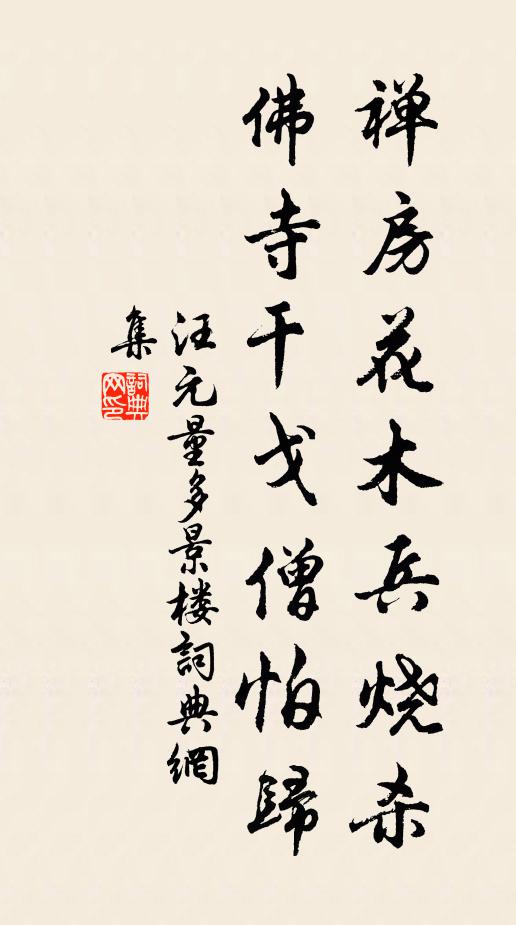 禅房花木兵烧杀
佛寺干戈僧怕歸
汪元量多景楼詞典網
集
詞典网印